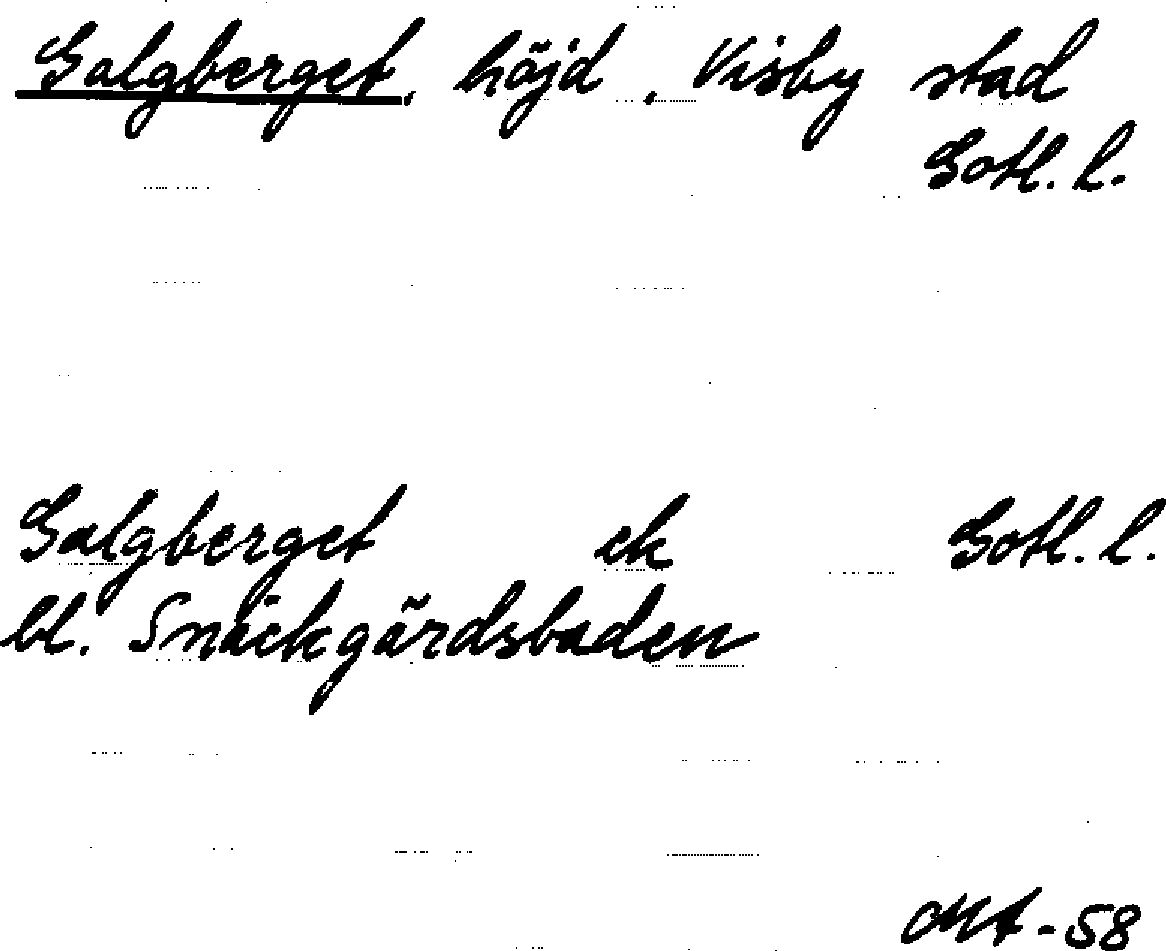 Galgberget, höjd, Visby stad
Gotl. l.
Galgberget ek Gotl. l.
bl. Snäckgärdsbaden
MA-58